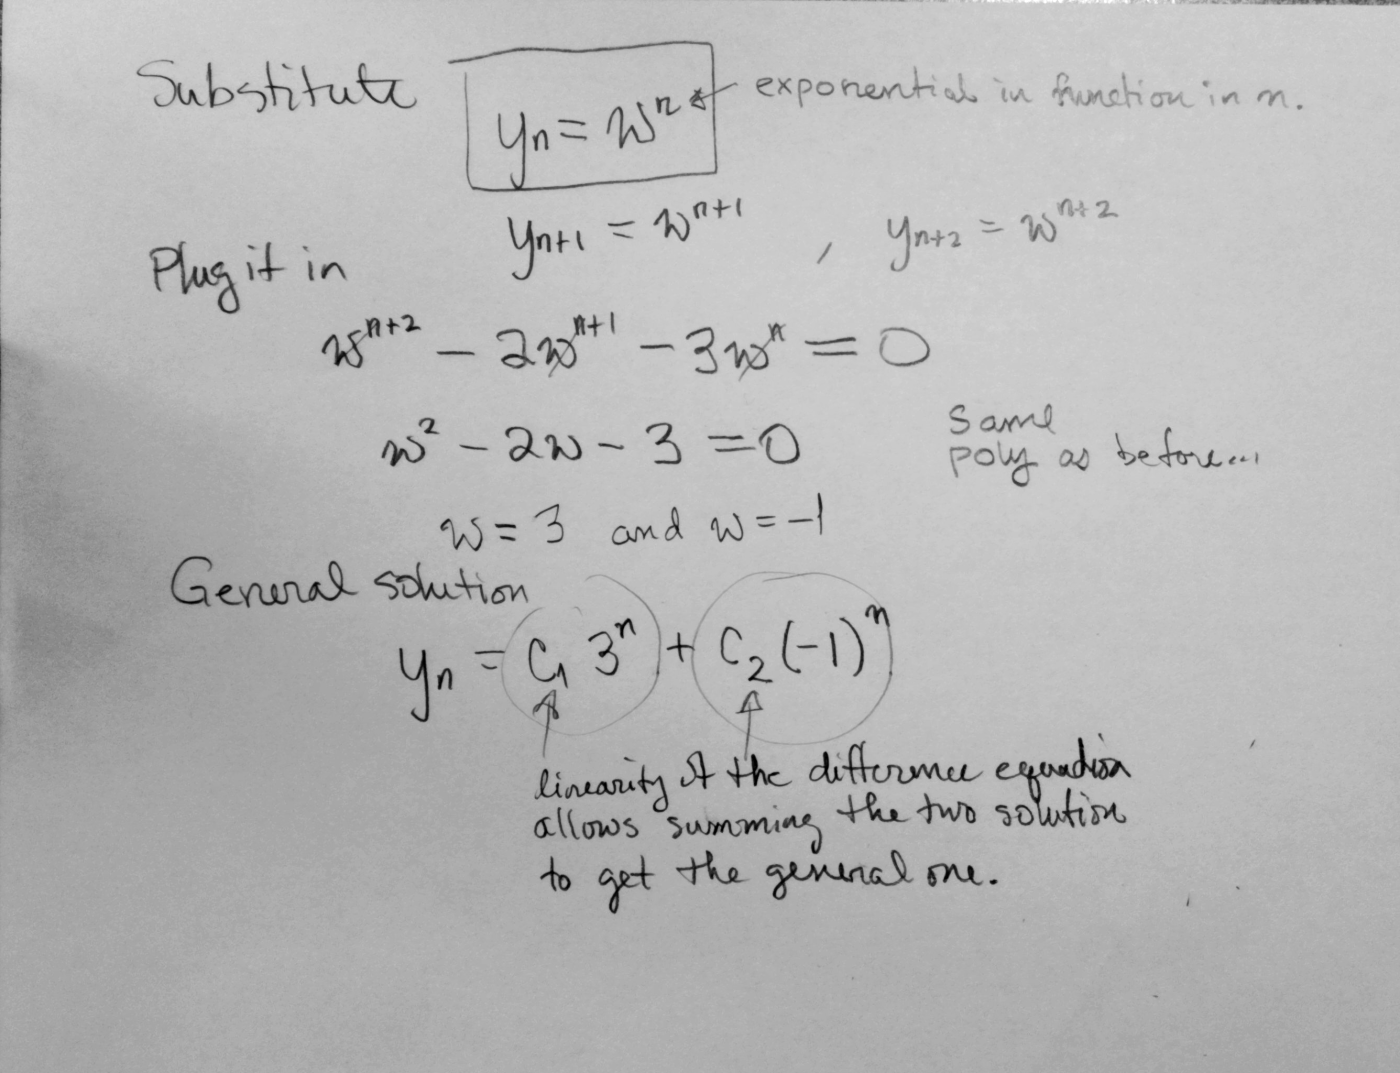 Substitute yₙ = wⁿ ← exponential in function in n.
yₙ₊₁ = wⁿ⁺¹ , yₙ₊₂ = wⁿ⁺²
Plug it in
wⁿ⁺² − 2wⁿ⁺¹ − 3wⁿ = 0
w² − 2w − 3 = 0
Same
poly as before...
w = 3 and w = −1
General solution
yₙ = C₁ 3ⁿ + C₂ (−1)ⁿ
linearity of the difference equation
allows summing the two solution
to get the general one.